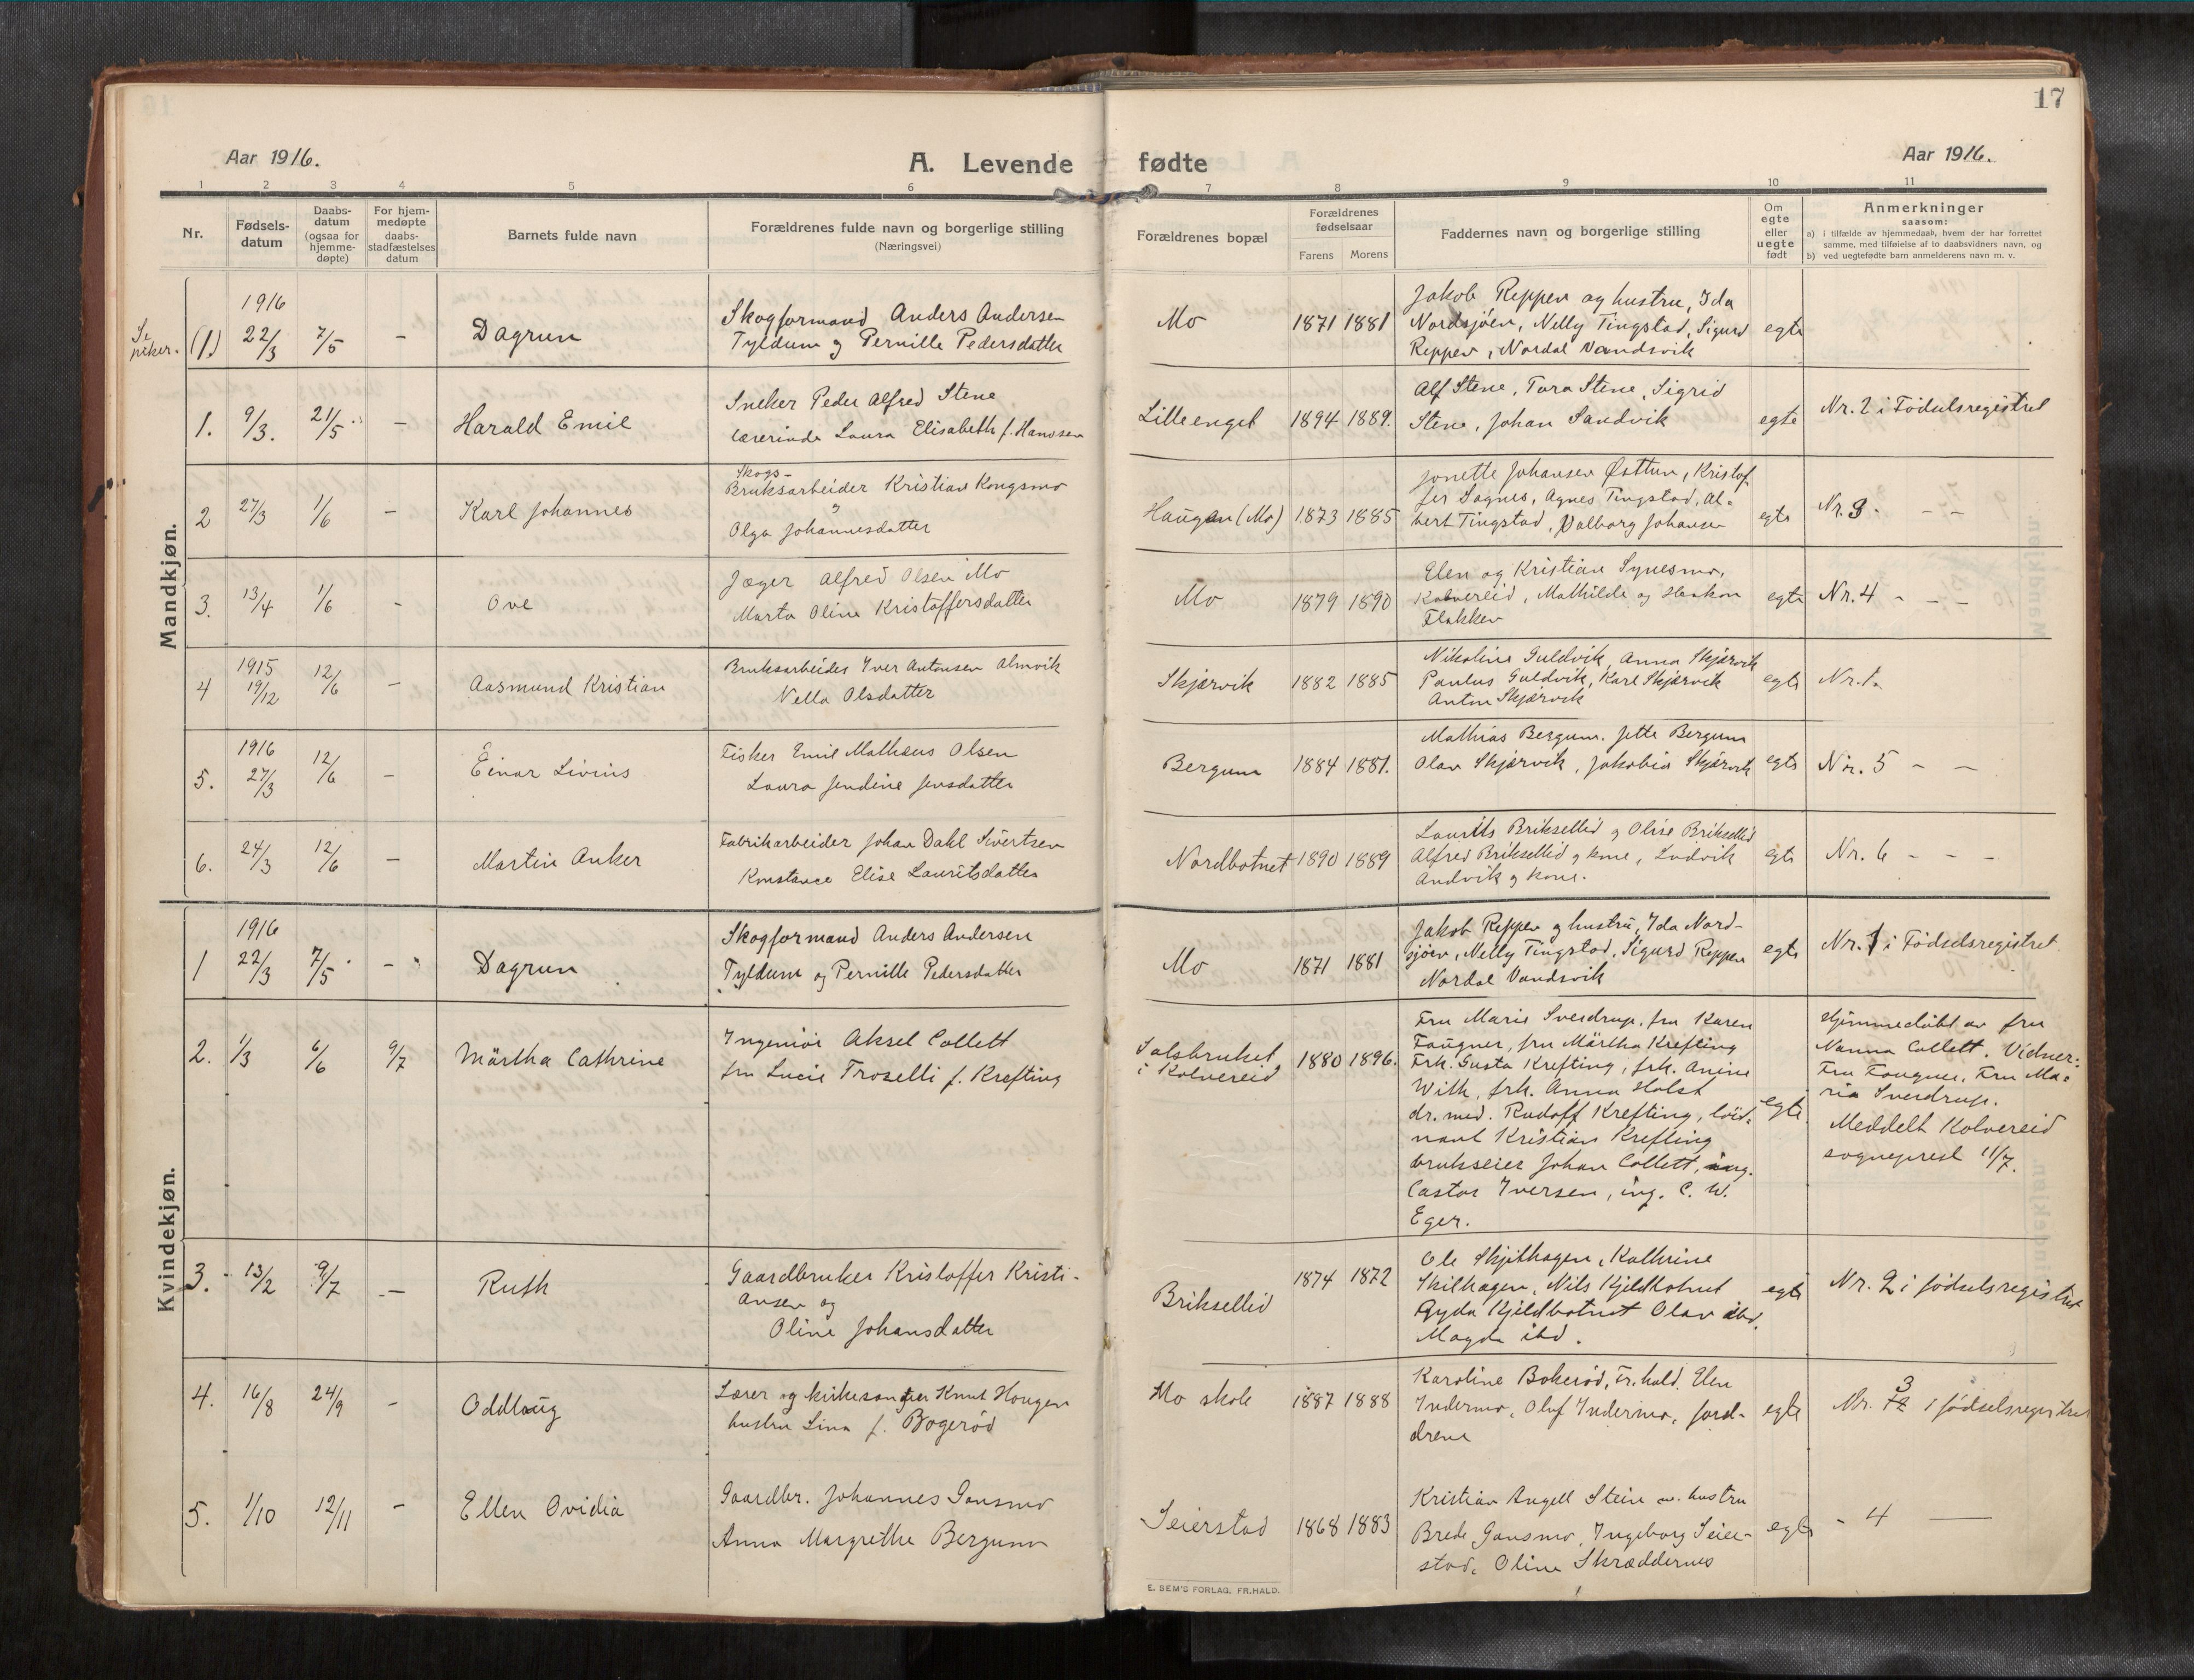 17
Aar 1916.
A. Levende
fødte
Aar 1916.
1 2 3 4 5 6 7 8 9 10 11
Nr.
Fødsels-
datum
Daabs-
datum
(ogsaa for
hjemme-
døpte)
For hjem-
medøpte
daabs-
stadfæstelses
datum
Barnets fulde navn
Forældrenes fulde navn og borgerlige stilling
(Næringsvei)
Forældrenes bopæl
Forældrenes
fødselsaar
Farens
Morens
Faddernes navn og borgerlige stilling
Om
egte
eller
uegte
født
Anmerkninger
saasom:
a) i tilfælde av hjemmedaab, hvem der har forrettet
samme, med tilføielse av to daabsvidners navn, og
b) ved uegtefødte barn anmelderens navn m. v.
Mandkjøn.
Se
piker.
(1.)
1916
22/3
7/5
-
Dagrun
Skogformand Anders Andersen
Tyldum og Pernille Pedersdatter
Mo
1871 1881
Jakob Reppen og hustru, Ida
Nordsjöen, Nelly Tingstad, Sigurd
Reppen, Nordal Vandsvik
egte
1.
9/3.
21/5
-
Harald Emil
Sneker Peder Alfred Stene
lærerinde Laura Elisabeth f. Hanssen
Lilleenget
1894 1889.
Alf Stene, Tora Stene, Sigrid
Stene, Johan Sandvik
egte
Nr. 2 i Födselsregistret
2
27/3
1/6
-
Karl Johannes
Skogs-
Bruksarbeider Kristian Kongsmo
og
Olga Johannesdatter
Haugen (Mo)
1873 1885
Jonette Johansen Østtun, Kristof
fer Sagnes, Agnes Tingstad, Al-
bert Tingstad, Valborg Johansen
egte
Nr. 3. - -
3.
13/4
1/6
-
Ove
Jæger Alfred Olsen Mo
Marta Oline Kristoffersdatter
Mo
1879 1890
Elen og Kristian Synesmo,
Kolvereid, Mathilde og Haakon
Flakken
egte
Nr. 4 - - -
4
1915
19/12
12/6
-
Aasmund Kristian
Bruksarbeider Iver Antonsen Almvik
Nella Olsdatter
Skjærvik
1882 1885
Nikoline Guldvik, Anna Skjærvik
Paulus Guldvik, Karl Skjærvik
Anton Skjærvik
egte
Nr. 1.
5.
1916
27/3
12/6
-
Einar Livius
Fisker Emil Mathæus Olsen
Laura Jendine Jensdatter
Bergum
1884 1881.
Mathias Bergum. Jette Bergum
Olav Skjærvik, Jakobia Skjærvik
egte
Nr. 5 - -
6.
24/3
12/6
-
Martin Anker
Fabrikarbeider Johan Dahl Sivertsen
Konstance Elise Lauritsdatter
Nordbotnet
1890 1889
Laurits Briksellid og Olise Briksellid
Alfred Briksellid og kone, Ludvik
Andvik og kone.
egte
Nr. 6 - - -
Kvindekjøn.
1
1916
22/3
7/5
-
Dagrun
Skogformand Anders Andersen
Tyldum og Pernille Pedersdatter
Mo
1871 1881
Jakob Reppen og hustru, Ida Nord-
sjöen, Nelly Tingstad, Sigurd Reppen
Nordal Vandsvik
egte
Nr. 1 i Födselsregistret
2.
1/3
6/6
9/7
Märtha Cathrine
Ingeniör Aksel Collett
fru Lucie Troselli f. Krefting
Salsbruket
i Kolvereid
1880 1896.
Fru Marie Sverdrup, fru Karen
Fougner, fru Märtha Krefting
Frk. Gusta Krefting, frk. Anine
With, frk. Anna Holst
dr. med. Rudolf Krefting, löit-
nant Kristian Krefting
brukseier Johan Collett, ing.
Castor Iversen, ing. C. W.
Eger.
egte.
Hjemmedöbt av fru
Nanna Collett. Vidner:
Fru Fougner, Fru Ma-
rie Sverdrup.
Meddelt Kolvereid
sogneprest 11/7.
3.
13/2
9/7
-
Ruth
Gaardbruker Kristoffer Kristi-
ansen og
Oline Johansdatter
Briksellid
1874 1872
Ole Skjithagen, Kathrine
Skilhagen, Nils Kjeldbotnet
Gyda Kjeldbotnet Olav ibd.
Magda ibd.
egte
Nr. 2 i födselsregistret
4.
16/8
24/9
-
Oddlaug
Lærer og kirkesanger Knut Hougen
hustru Lina f. Bogeröd
Mo skole
1887 1888
Karoline Bokeröd, Fr.hald. Elen
Indermo, Oluf Indermo, foræl-
drene
egte
Nr. 3 i födselsregistret
5.
1/10
12/11
-
Ellen Ovidia
Gaardbr. Johannes Gansmo
Anna Margrethe Bergum
Seierstad
1868 1883
Kristian Angell Stein m. hustru
Brede Gansmo, Ingeborg Seier-
stad, Oline Skræddernes
egte
- 4 —
E. SEM'S FORLAG, FR.HALD.